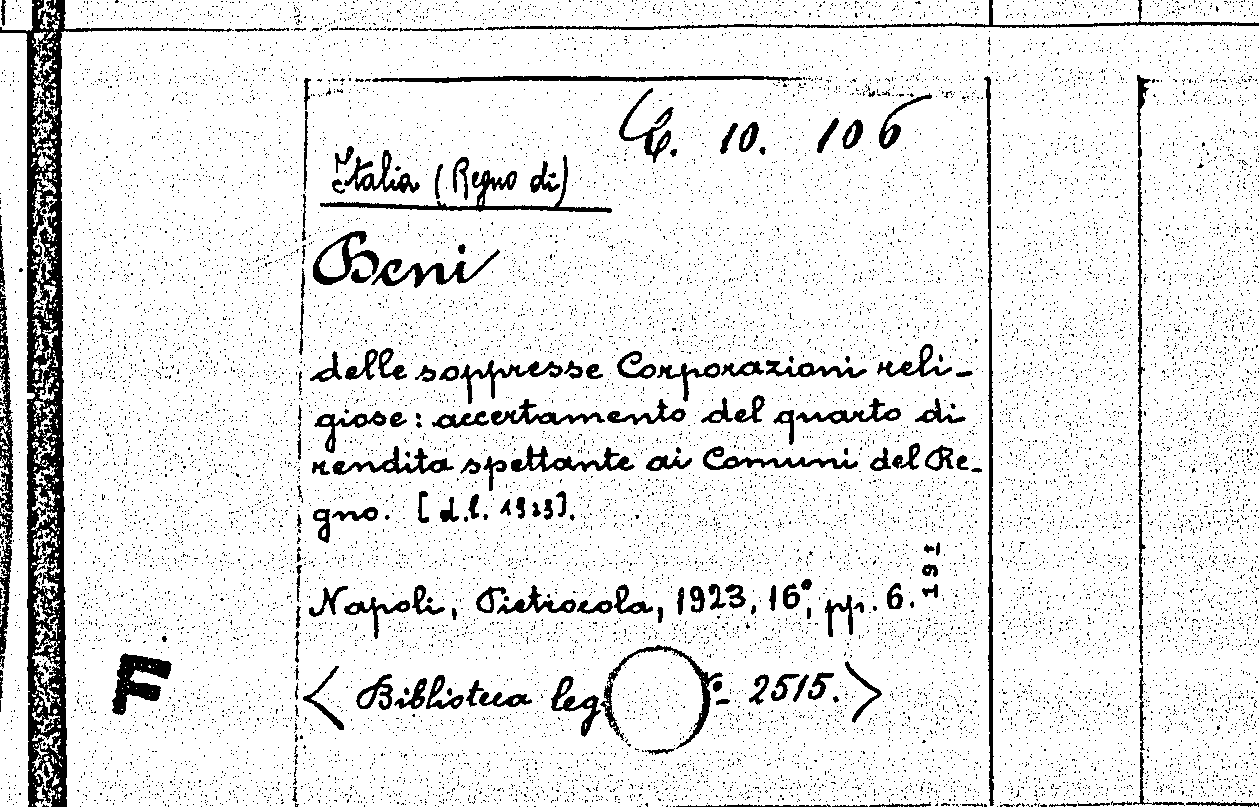 C. 10. 106
Italia (Regno di)
Beni
delle soppresse Corporazioni reli-
giose: accertamento del quarto di
rendita spettante ai Comuni del Re-
gno. [d.l. 1923].
191
Napoli, Pietrocola, 1923, 16°, pp. 6.
F
< Biblioteca leg. 2515. >